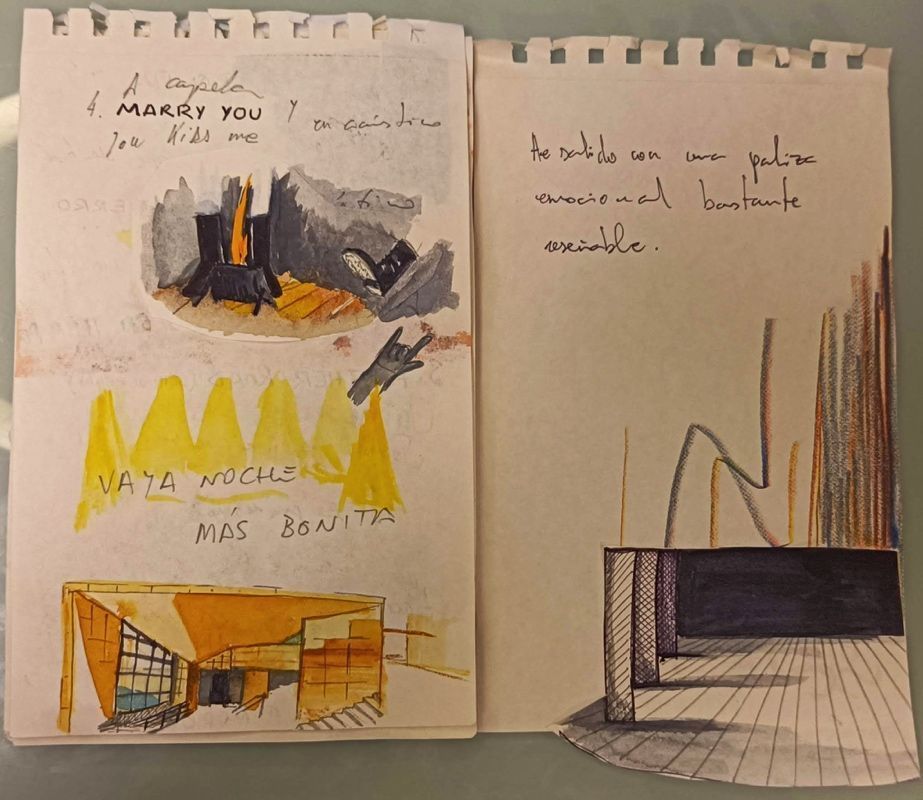 A capela
4. MARRY YOU y en acústico
You Kiss me
VAYA NOCHE
MÁS BONITA
He salido con una paliza
emocional bastante
reseñable.